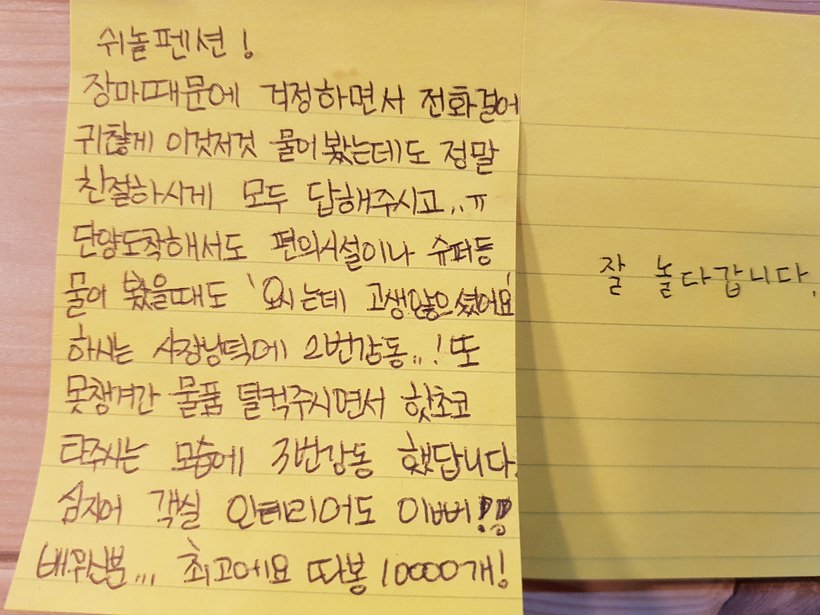 쉬놀펜션!
장마때문에 걱정하면서 전화걸어
귀찮게 이것저것 물어봤는데도 정말
친절하시게 모두 답해주시고..ㅠ
단양도착해서도 편의시설이나 슈퍼등
물어 봤을때도 '오시는데 고생많으셨어요'
하시는 사장님덕에 2번감동..! 또
못챙겨간 물품 덜컥주시면서 핫초코
타주시는 모습에 3번감동 했답니다.
심지어 객실 인테리어도 이뻐!!
배우신분... 최고에요 따봉 10000개!
잘 놀다갑니다.